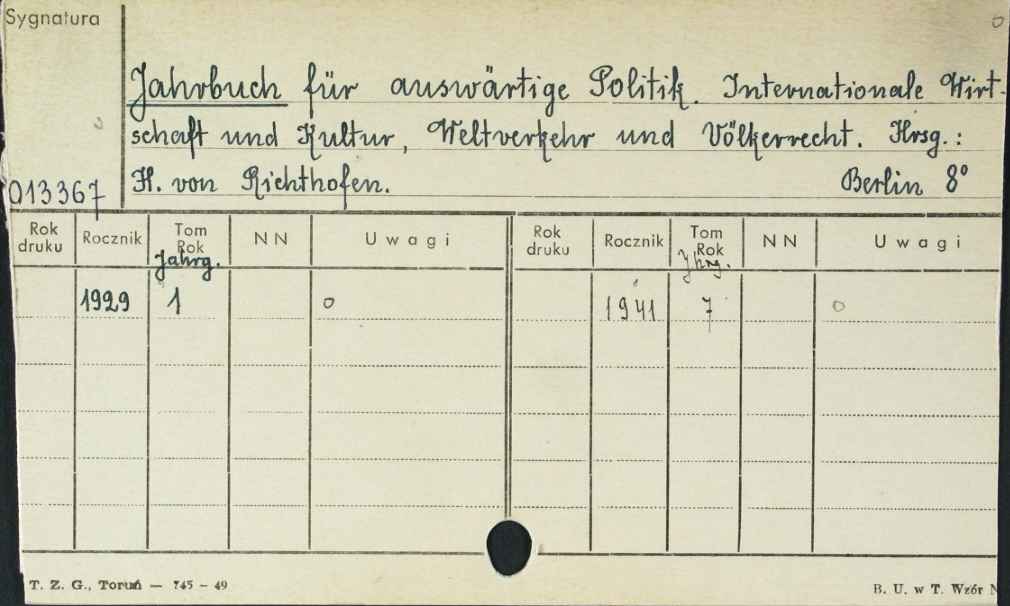 Sygnatura
Jahrbuch für auswärtige Politik. Internationale Wirt-
schaft und Kultur, Weltverkehr und Völkerrecht. Hrsg.:
013367 H. von Richthofen. Berlin 8°
Rok druku Rocznik Tom Rok Jahrg. NN Uwagi Rok druku Rocznik Tom Rok Jhrg. NN Uwagi
1929 1 o 1941 7 o
T. Z. G., Toruń — 745 – 49 B. U. w T. Wzór N